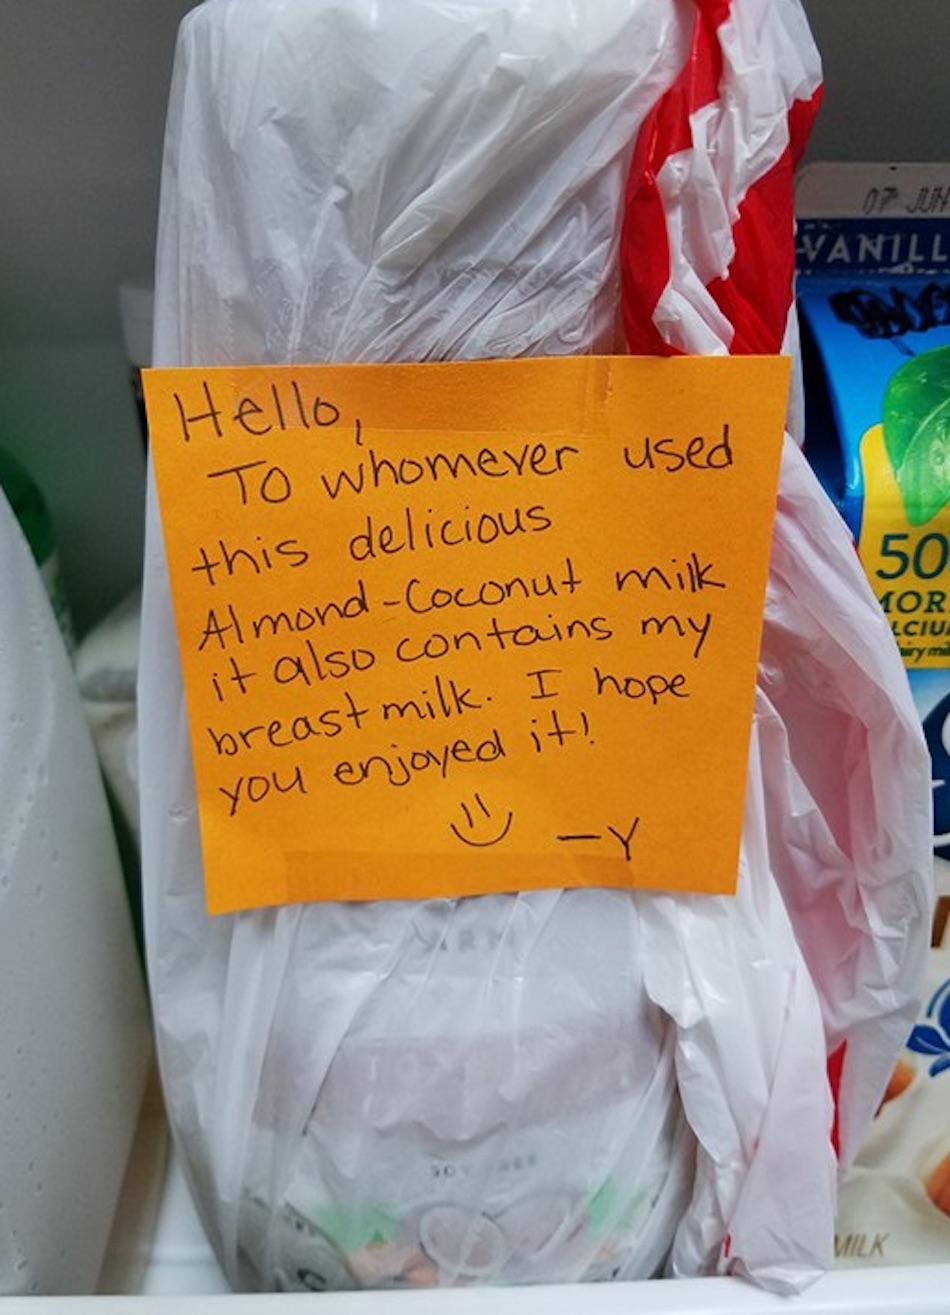 Hello,
To whomever used
this delicious
Almond-Coconut milk
it also contains my
breast milk. I hope
you enjoyed it!
-Y
07 JUN
VANILL
50
MOR
LCIU
MILK